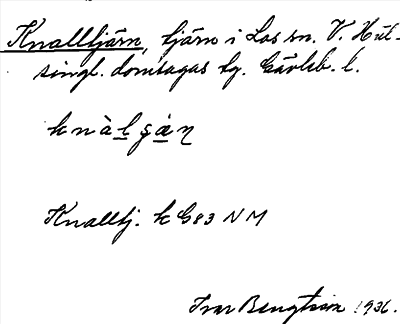 Knalltjärn, tjärn i Los sn. V. Häl-
singl. domsagas tg. Gävleb. l.
knàlşàṇ
Knalltj. k G83 NM
Ivar Bengtsson 1936.